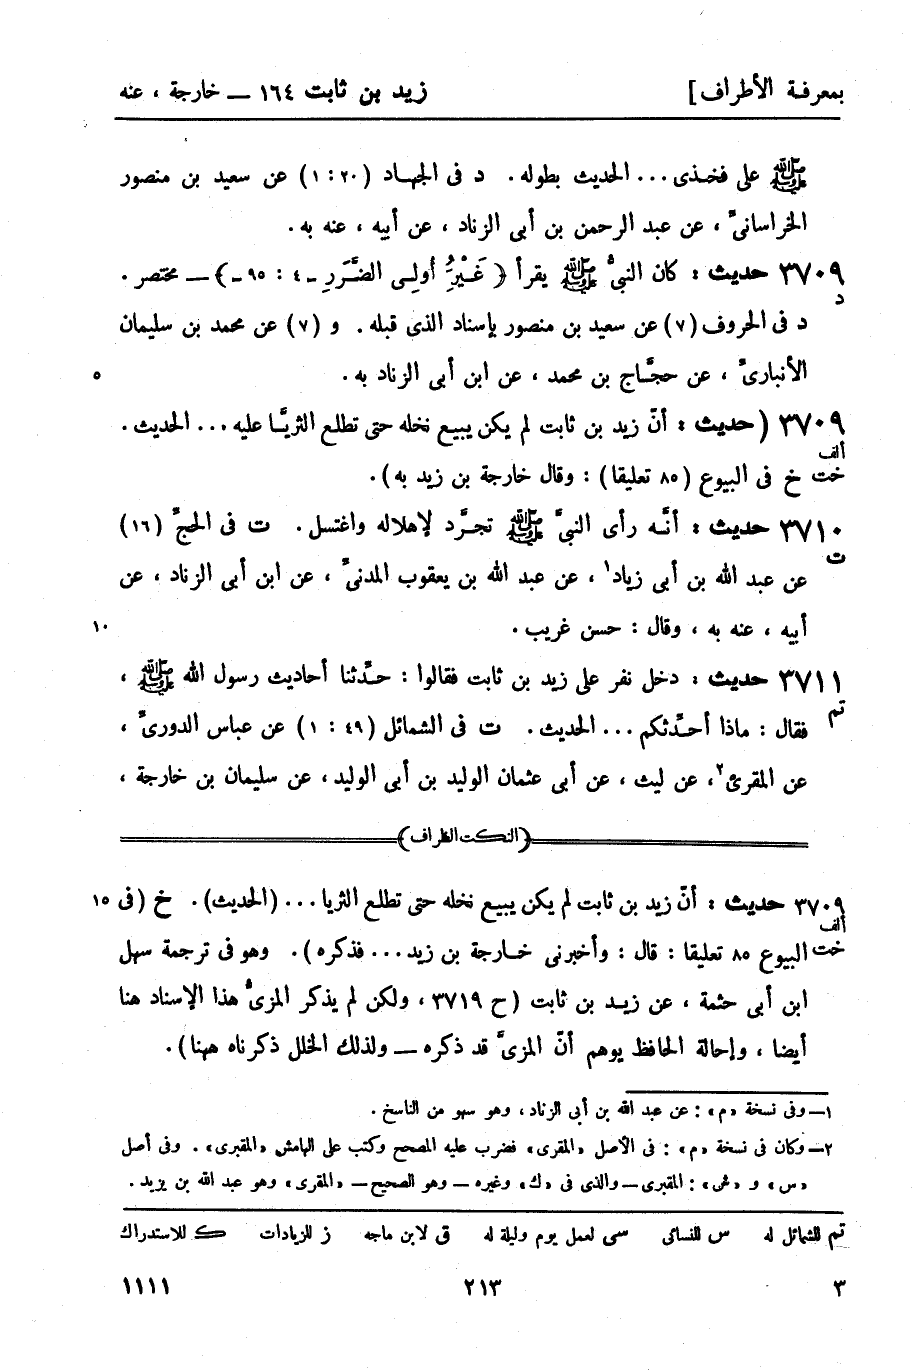 بمعرفة الأطراف] زيد بن ثابت ١٦٤ — خارجة ، عنه
ﷺ على فخذى ... الحديث بطوله . د فى الجهاد (٢٠ : ١) عن سعيد بن منصور
الخراسانىّ ، عن عبد الرحمن بن أبى الزناد ، عن أبيه ، عنه به .
٣٧٠٩ حديث : كان النبىُّ ﷺ يقرأ ﴿ غَيْرُ أولِى الضَّرَرِ ـ ٤ : ٩٥ ـ ﴾ — مختصر .
د
د فى الحروف (٧) عن سعيد بن منصور بإسناد الذى قبله . و (٧) عن محمد بن سليمان
الأنبارىّ ، عن حجَّاج بن محمد ، عن ابن أبى الزناد به . ٥
٣٧٠٩ (حديث : أنّ زيد بن ثابت لم يكن يبيع نخله حتى تطلع الثريَّا عليه ... الحديث .
ألف
خت خ فى البيوع (٨٥ تعليقا) : وقال خارجة بن زيد به) .
٣٧١٠ حديث : أنَّه رأى النبىَّ ﷺ تجرَّد لإهلاله واغتسل . ت فى الحجّ (١٦)
ت
عن عبد الله بن أبى زياد١ ، عن عبد الله بن يعقوب المدنىّ ، عن ابن أبى الزناد ، عن
أبيه ، عنه به ، وقال : حسن غريب . ١٠
٣٧١١ حديث : دخل نفر على زيد بن ثابت فقالوا : حدِّثنا أحاديث رسول الله ﷺ ،
تم
فقال : ماذا أحدِّثكم ... الحديث . ت فى الشمائل (٤٩ : ١) عن عباس الدورىّ ،
عن المقرئ٢، عن ليث ، عن أبى عثمان الوليد بن أبى الوليد، عن سليمان بن خارجة ،
(النكت الظراف)
٣٧٠٩ حديث : أنّ زيد بن ثابت لم يكن يبيع نخله حتى تطلع الثريا ... (الحديث) . خ (فى ١٥
ألف
خت البيوع ٨٥ تعليقا : قال : وأخبرنى خارجة بن زيد ... فذكره) . وهو فى ترجمة سهل
ابن أبى حثمة ، عن زيد بن ثابت (ح ٣٧١٩ ، ولكن لم يذكر المزىُّ هذا الإسناد هنا
أيضا ، وإحالة الحافظ يوهم أنّ المزىَّ قد ذكره — ولذلك الخلل ذكرناه ههنا) .
١— وفى نسخة «م» : عن عبد الله بن أبى الزناد ، وهو سهو من الناسخ .
٢— وكان فى نسخة «م» : فى الأصل «المقرى» فضرب عليه المصحح وكتب على الهامش «المقبرى» . وفى أصل
«س» و «ش» : المقبرى — والذى فى «ك» وغيره — وهو الصحيح — «المقرى» وهو عبد الله بن يزيد .
تم للشمائل له س للنسائى سى لعمل يوم وليلة له ق لابن ماجه ز للزيادات ك للاستدراك
٣ ٢١٣ ١١١١